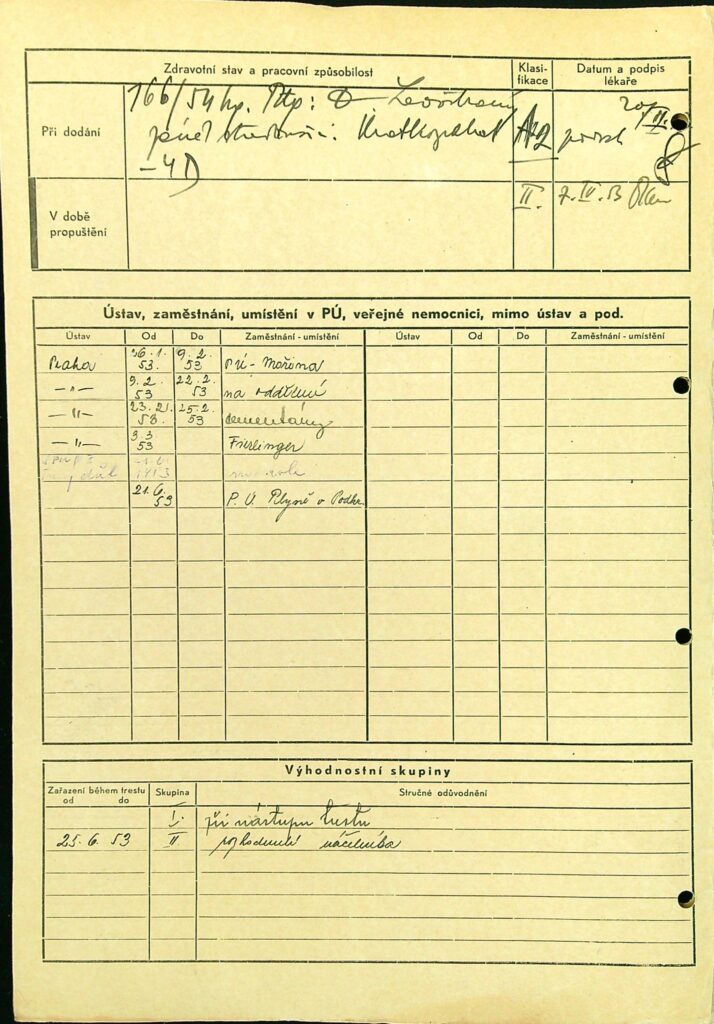 Zdravotní stav a pracovní způsobilost
Klasi-
fikace
Datum a podpis
lékaře
Při dodání
166/54 kg.
A2
- 4 D
V době
propuštění
II. 7. IV. 53
Ústav, zaměstnání, umístění v PÚ, veřejné nemocnici, mimo ústav a pod.
Ústav Od Do Zaměstnání - umístění Ústav Od Do Zaměstnání - umístění
Praha 26. 1. 53. 9. 2. 53 PÚ - Mořina
—"— 9. 2. 53 22. 2. 53 na oddělení
—"— 23. 2. 53. 25. 2. 53 cementárny
—"— 3. 3. 53 Fierlinger
21. 6. 53 P. Ú. Rtyně v Podkr.
Výhodnostní skupiny
Zařazení během trestu
od do
Skupina
Stručné odůvodnění
I. při nástupu trestu
25. 6. 53 II rozhodnutí náčelníka